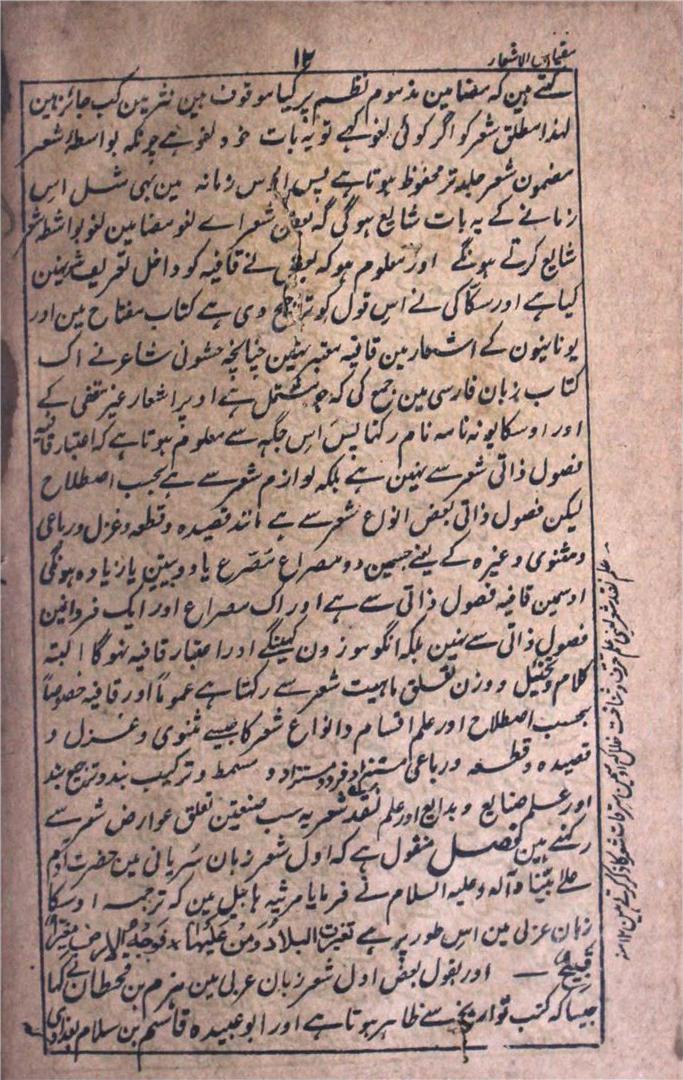 مقیاس الاشعار
۱۲
کہتے ہین کہ مضامین مذموم نظم پر کیا موقوف ہین نثر مین کب جائز ہین
لہذا مطلق شعر کو اگر کوئی لغو کہے تو یہ بات خود لغو ہے چونکہ بواسطۂ شعر
مضمون شعر جلد تر محفوظ ہوتا ہے پس اوس زمانہ مین بہی مثل اس
زمانے کے یہ بات شایع ہوگی کہ بعض شعراے لغو مضامین لغو بواسطۂ شعر
شایع کرتے ہونگے اور معلوم ہو کہ بعض نے قافیہ کو داخل تعریف شعر نہین
کیا ہے اور سکاکی نے اس قول کو ترجیح دی ہے کتاب مفتاح مین اور
یونانیون کے اشعار مین قافیہ معتبر نہین چنانچہ حشونی شاعر نے اک
کتاب زبان فارسی مین جمع کی کہ جو مشتمل ہے اوپر اشعار غیر مقفی کے
اور اوسکا یونہ نامہ نام رکھا پس اس جگہہ سے معلوم ہوتا ہے کہ اعتبار قافیہ
فصول ذاتی شعر سے نہین ہے بلکہ لوازم شعر سے ہے بحسب اصطلاح
لیکن فصول ذاتی بعض انواع شعر سے ہے مانند قصیدہ و قطعہ و غزل و رباعی
و مثنوی وغیرہ کے یعنے جسمین دو مصراع مصرع یا دو بیتین یا زیادہ ہونگی
اوسمین قافیہ فصول ذاتی سے ہے اور اک مصراع اور ایک فرد مین
فصول ذاتی سے نہین بلکہ انکو موزون کہینگے اور اعتبار قافیہ نہوگا البتہ
کلام و تخئیل و وزن تعلق ماہیت شعر سے رکھتا ہے عموماً اور قافیہ خصوصاً
بحسب اصطلاح اور علم اقسام و انواع شعر کا جیسے مثنوی و غزل و
قصیدہ و قطعہ و رباعی و فرد و مستزاد و مسمط و ترکیب بند و ترجیع بند
اور علم صنایع و بدایع اور علم نقد شعر یہ سب صنعتین تعلق عوارض شعر سے
رکھتے ہین فصل منقول ہے کہ اول شعر زبان سریانی مین حضرت آدم
علے نبینا وآلہ وعلیہ السلام نے فرمایا مرثیہ ہابیل مین کہ ترجمہ اوسکا
زبان عربی مین اس طور پر ہے تغیرت البلاد و من علیہا * فوجہ الارض مغبر
قبیح — اور بقول بعض اول شعر زبان عربی مین یعرب بن قحطان نے کہا
جیسا کہ کتب تواریخ سے ظاہر ہوتا ہے اور ابوعبیدہ قاسم بن سلام بغدادی
علم نقد شعر یعنی علم